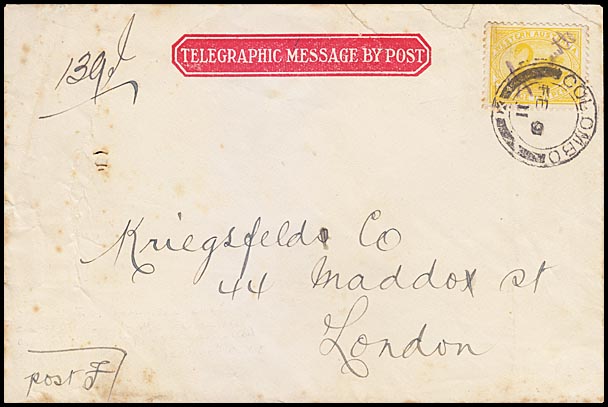 139
TELEGRAPHIC MESSAGE BY POST
WESTERN AUS
COLOMBO
Kriegsfelds Co
44 Maddox st
London
post